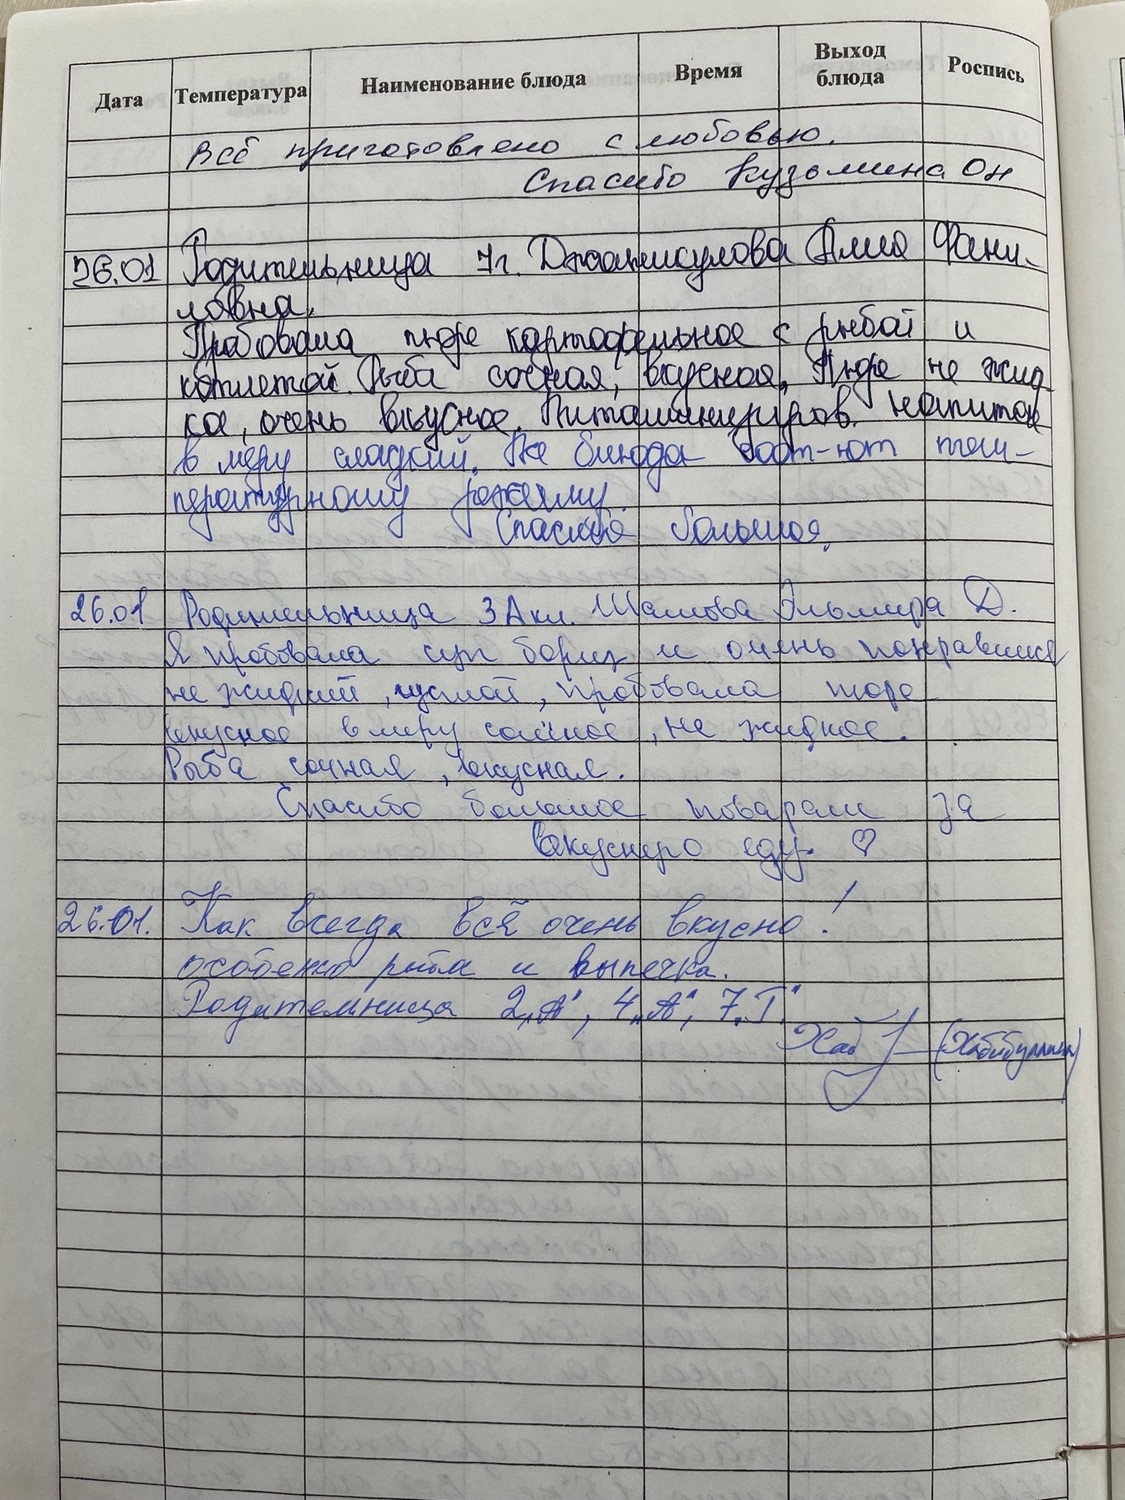 Дата Температура Наименование блюда Время Выход блюда Роспись
Всё приготовлено с любовью.
Спасибо Кузьмина ОН
26.01 Родительница 7г. Алия Фани-
ловна.
Пробовала пюре картофельное с рыбой и
котлетой. Рыба сочная, вкусная. Пюре не жид-
кое, очень вкусное. Витаминизиров. напиток
в меру сладкий. Все блюда соот-ют тем-
пературному режиму.
Спасибо большое.
26.01 Родительница 3А кл. Эльмира Д.
Я пробовала суп борщ и очень понравился
не жидкий, густой, пробовала пюре
вкусное в меру солёное, не жидкое.
Рыба сочная, вкусная.
Спасибо большое поварам за
вкусную еду. ♡
26.01. Как всегда всё очень вкусно!
особенно рыба и выпечка.
Родительница 2„А", 4„А", 7„Г"
Хаб (Хабибуллина)